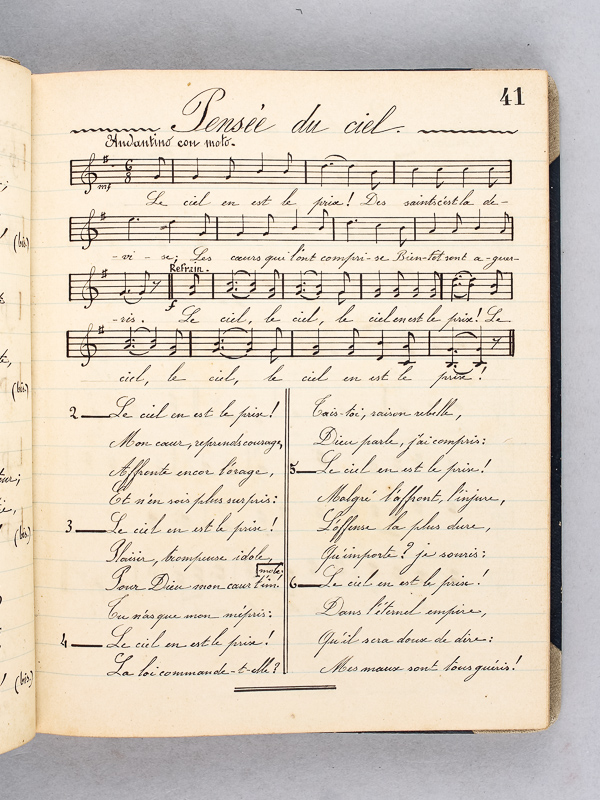 41
Pensée du ciel.
Andantino con moto.
6
8
mf
Le ciel en est le prix! Des saints c'est la de-
-vi-se; Les cœurs qui l'ont compri-se Bien-tôt sont a-guer-
Refrain.
f
-ris. Le ciel, le ciel, le ciel en est le prix! Le
ciel, le ciel, le ciel en est le prix!
2 Le ciel en est le prix!
Mon cœur, reprends courage,
Affronte encor l'orage,
Et n'en sois plus surpris:
3 Le ciel en est le prix!
Plaisir, trompeuse idole,
mole:
Pour Dieu mon cœur t'im-
Tu n'as que mon mépris:
4 Le ciel en est le prix!
La loi commande-t-elle?
Tais-toi, raison rebelle,
Dieu parle, j'ai compris:
5 Le ciel en est le prix!
Malgré l'affront, l'injure,
L'offense la plus dure,
Qu'importe? je souris:
6 Le ciel en est le prix!
Dans l'éternel empire,
Qu'il sera doux de dire:
Mes maux sont tous guéris!
(bis)
(bis.)
(bis)
(bis.)